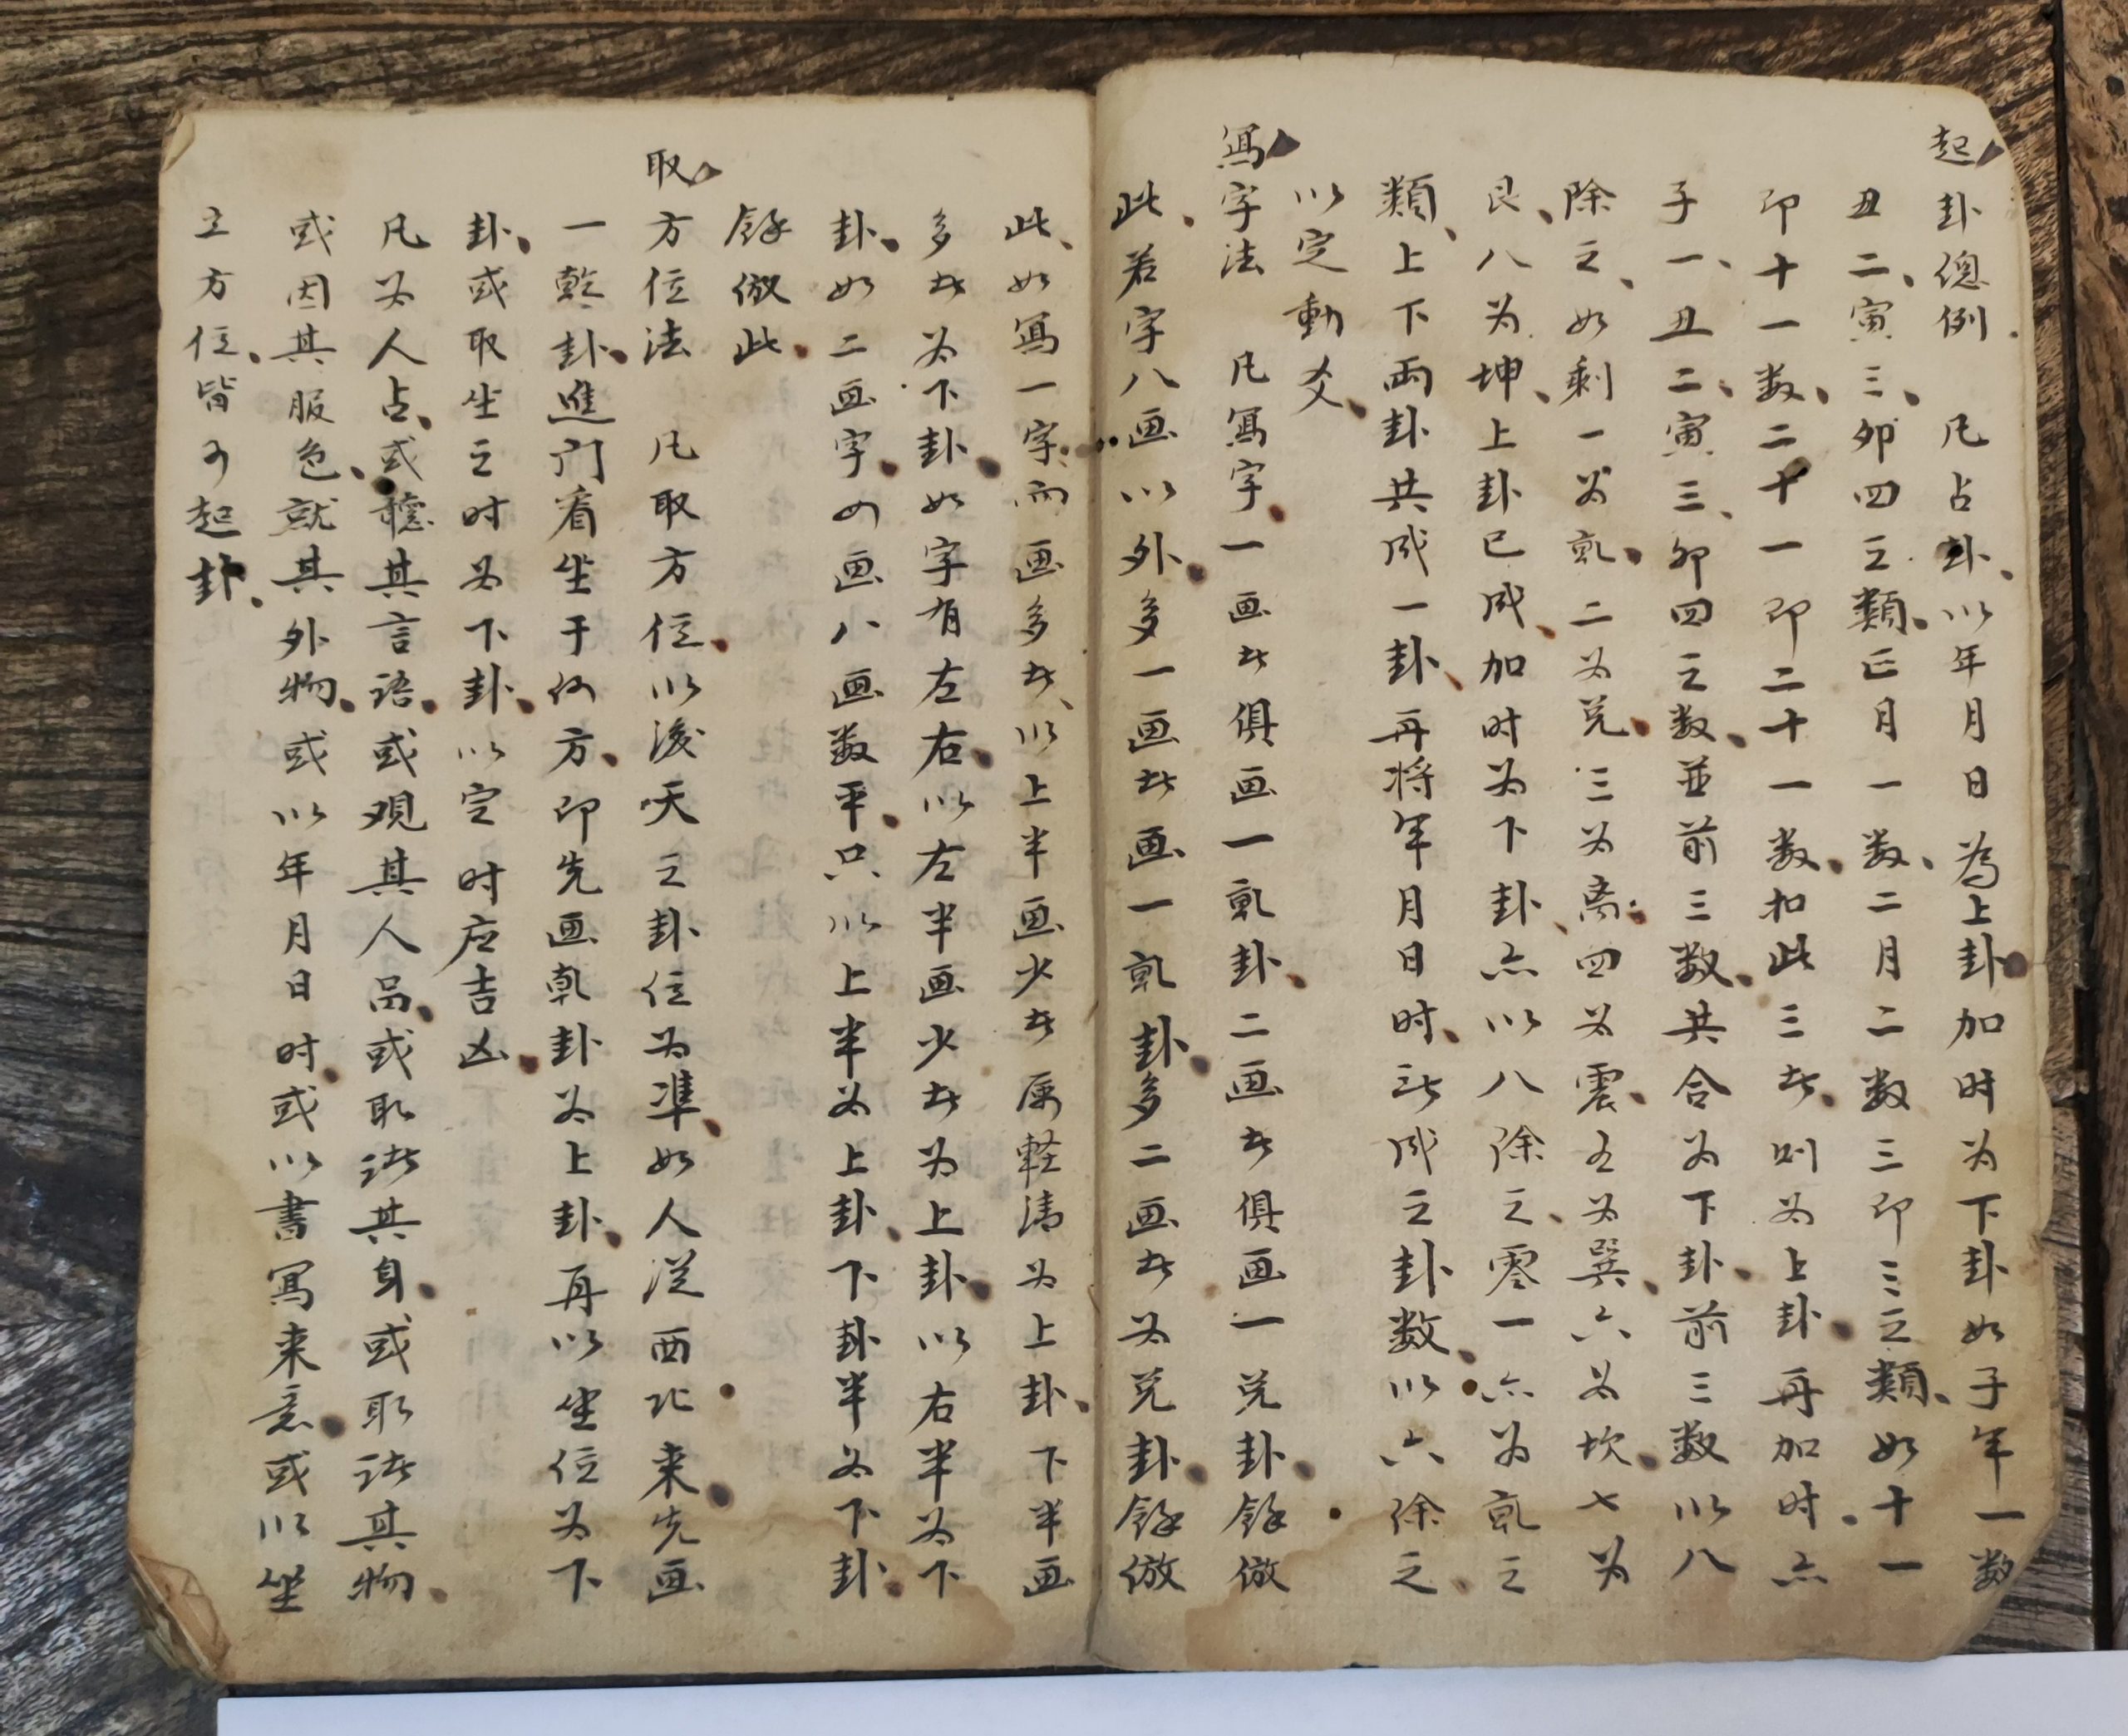 起卦總例　凡占卦以年月日為上卦加时为下卦如子年一数
丑二寅三卯四之類正月一数二月二数三即三之類如十一
即十一数二十一即二十一数扣此三者则为上卦再加时亦
子一丑二寅三卯四之数並前三数共合为下卦前三数以八
除之如剩一为乹二为兑三为离四为震五为巽六为坎七为
艮八为坤上卦已成加时为下卦亦以八除之零一亦为乹之
類上下兩卦共成一卦再将年月日时所成之卦数以六除之
以定動爻
寫字法　凡寫字一画者俱画一乹卦二画者俱画一兑卦餘倣
此若字八画以外多一画者画一乹卦多二画者为兑卦餘倣
此如寫一字而画多者以上半画少者属軽清为上卦下半画
多者为下卦如字有左右以左半画少者为上卦以右半为下
卦如二画字四画八画数平只以上半为上卦下卦半为下卦
餘倣此
取方位法　凡取方位以後天之卦位为凖如人従西北来先画
一乾卦進门看坐于何方即先画乹卦为上卦再以坐位为下
卦或取坐之时为下卦以定时应吉凶
凡为人占或聽其言語或观其人品或取诸其身或取诸其物
或因其服色就其外物或以年月日时或以書寫来意或以坐
立方位皆可起卦